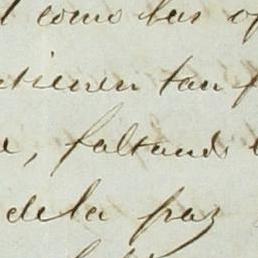 como las
tienen tan
, faltando
de la paz